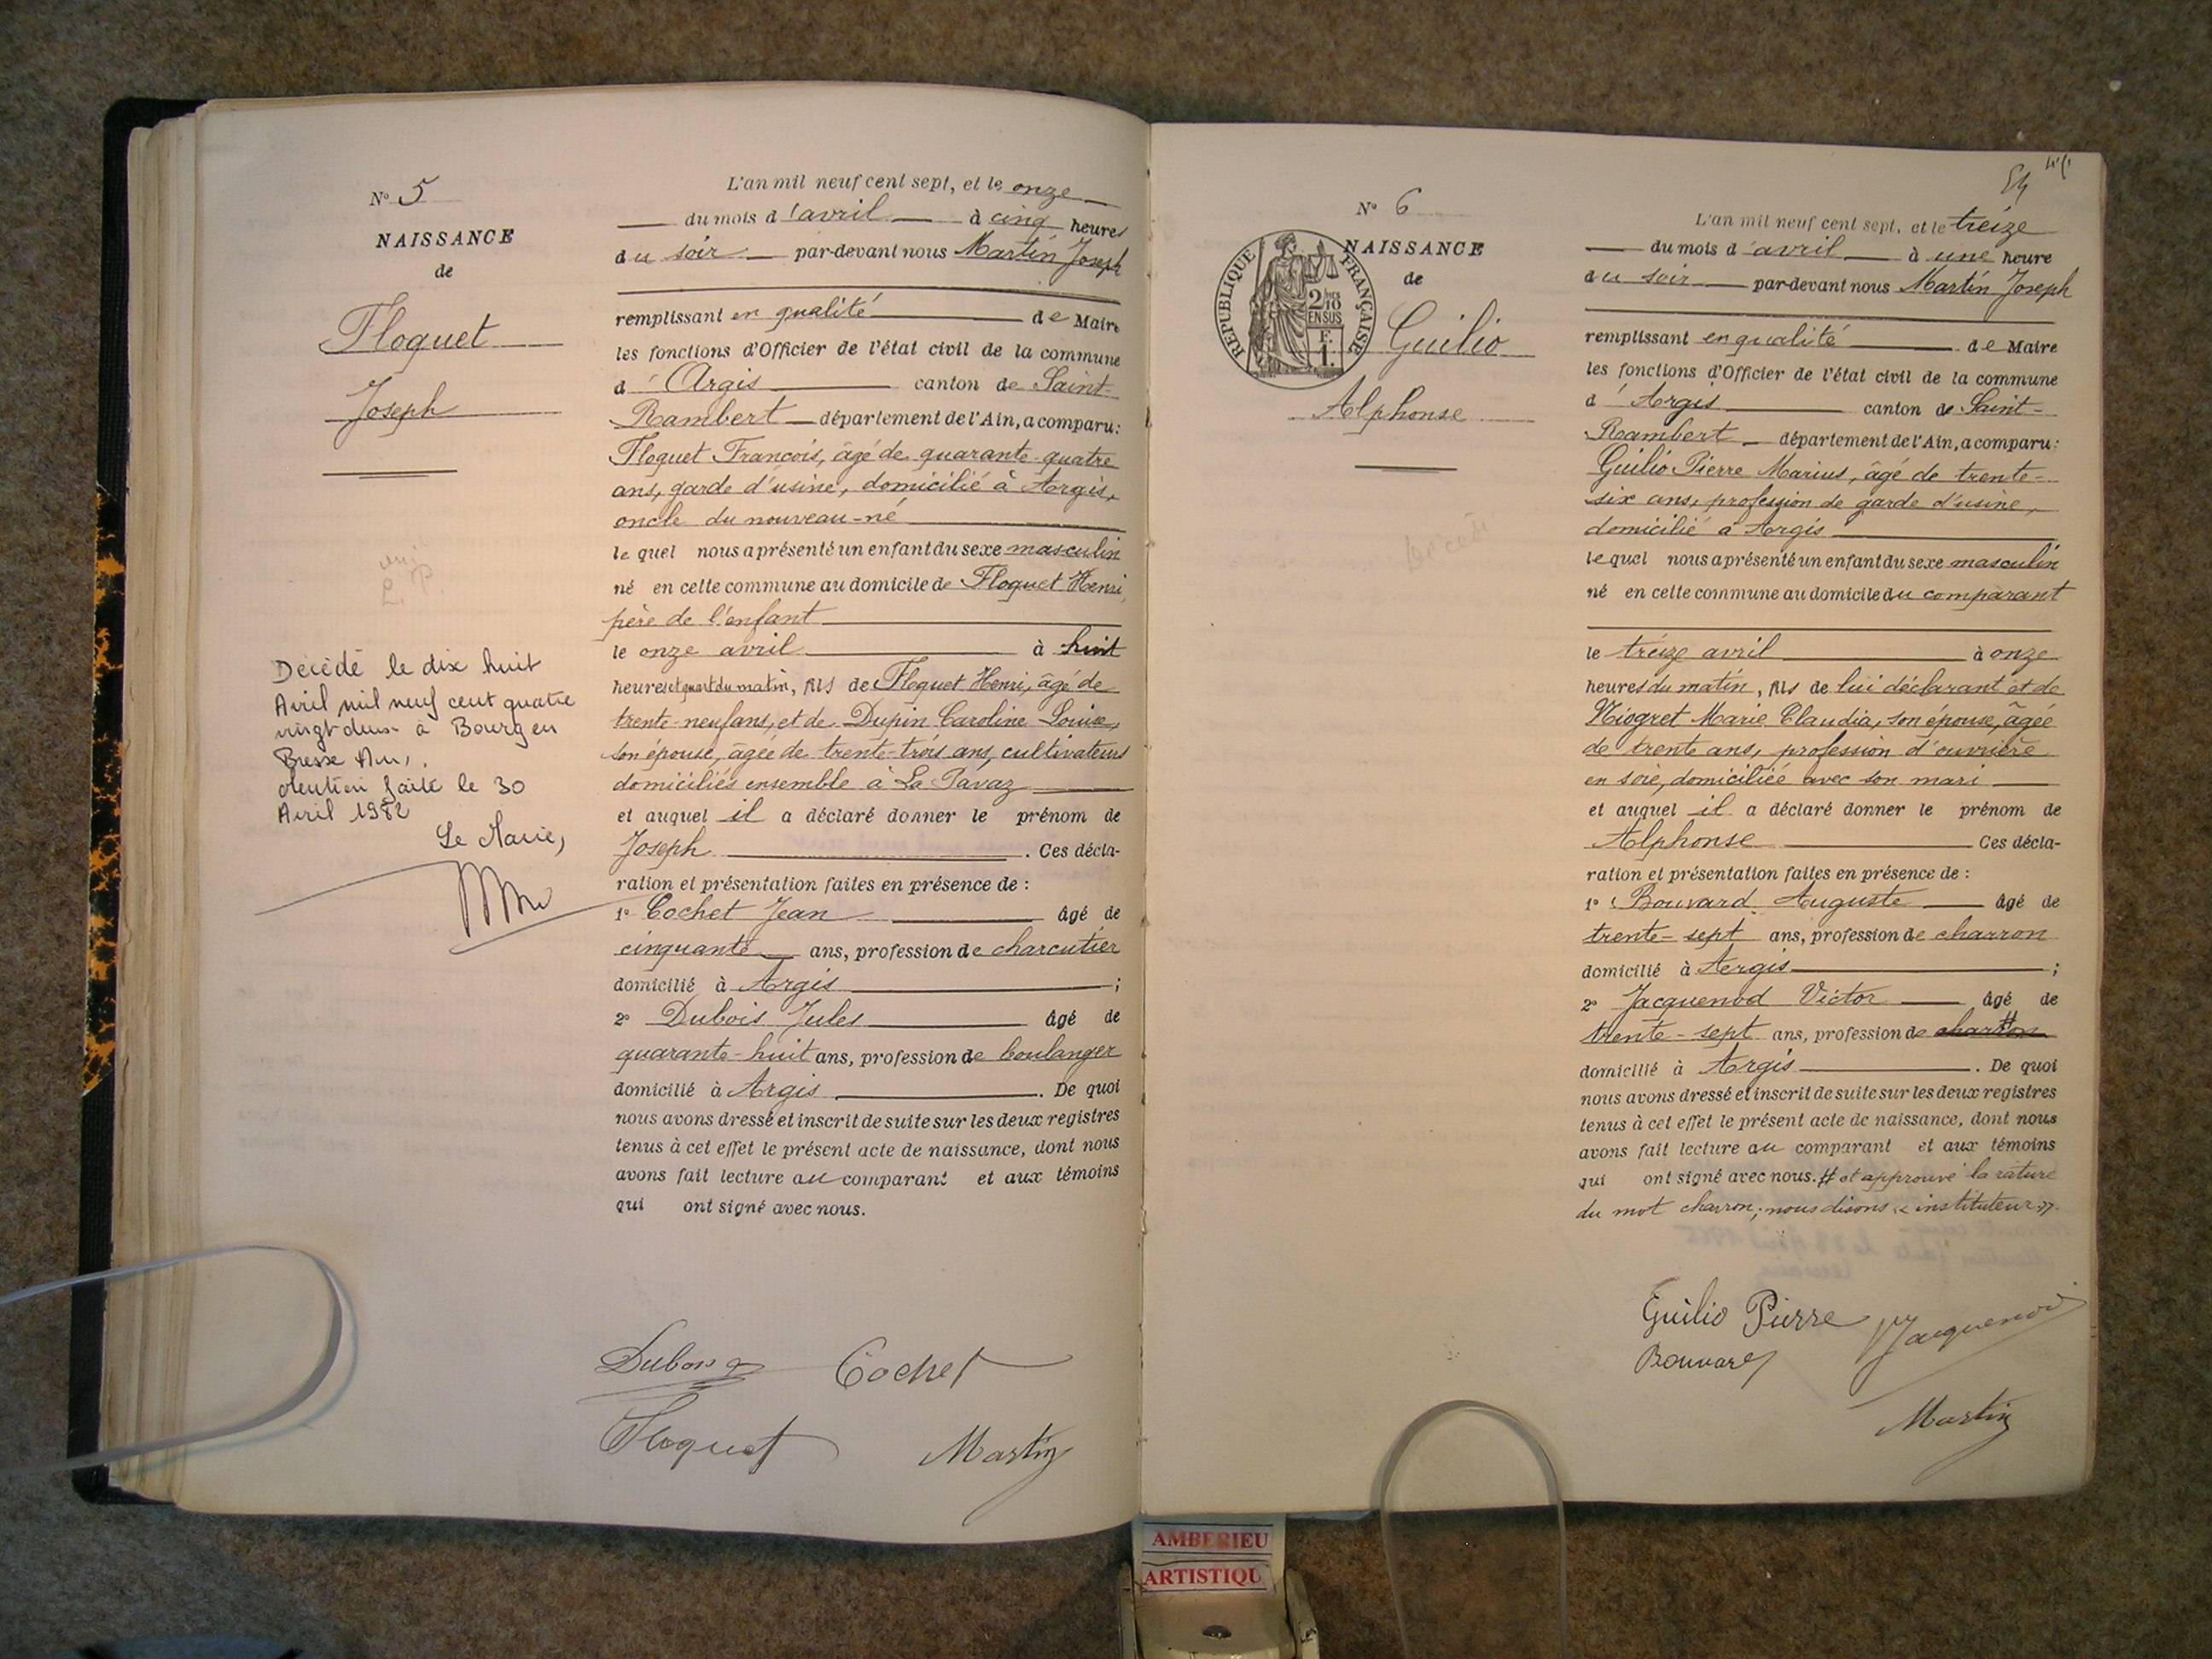 N° 5
NAISSANCE
de
Floquet
Joseph
Décédé le dix huit
Avril mil neuf cent quatre
vingt deux à Bourg en
Bresse Ain.
Mention faite le 30
Avril 1982
Le Maire,
L'an mil neuf cent sept, et le onze
du mois d'avril à cinq heures
du soir par-devant nous Martin Joseph
remplissant en qualité de Maire
les fonctions d'Officier de l'état civil de la commune
d'Argis canton de Saint-
Rambert département de l'Ain, a comparu:
Floquet François, âgé de quarante-quatre
ans, garde d'usine, domicilié à Argis,
oncle du nouveau-né
lequel nous a présenté un enfant du sexe masculin
né en cette commune au domicile de Floquet Henri,
père de l'enfant
le onze avril à huit
heures et quart du matin, fils de Floquet Henri, âgé de
trente-neuf ans, et de Dupin Caroline Louise,
son épouse, âgée de trente-trois ans, cultivateurs
domiciliés ensemble à La Pavaz
et auquel il a déclaré donner le prénom de
Joseph. Ces décla-
ration et présentation faites en présence de :
1° Cochet Jean âgé de
cinquante ans, profession de charcutier
domicilié à Argis ;
2° Dubois Jules âgé de
quarante-huit ans, profession de boulanger
domicilié à Argis. De quoi
nous avons dressé et inscrit de suite sur les deux registres
tenus à cet effet le présent acte de naissance, dont nous
avons fait lecture au comparant et aux témoins
qui ont signé avec nous.
Dubois Cochet
Floquet Martin
N° 6
NAISSANCE
de
Guilio
Alphonse
RÉPUBLIQUE FRANÇAISE
2/10
EN SUS
F.
1.
L'an mil neuf cent sept, et le treize
du mois d'avril à une heure
du soir par-devant nous Martin Joseph
remplissant en qualité de Maire
les fonctions d'Officier de l'état civil de la commune
d'Argis canton de Saint-
Rambert département de l'Ain, a comparu:
Guilio Pierre Marius, âgé de trente-
six ans, profession de garde d'usine,
domicilié à Argis
lequel nous a présenté un enfant du sexe masculin
né en cette commune au domicile du comparant
le treize avril à onze
heures du matin, fils de lui déclarant et de
Niogret Marie Claudia, son épouse, âgée
de trente ans, profession d'ouvrière
en soie, domiciliée avec son mari
et auquel il a déclaré donner le prénom de
Alphonse Ces décla-
ration et présentation faites en présence de :
1° Bouvard Auguste âgé de
trente-sept ans, profession de charron
domicilié à Argis ;
2° Jacquenod Victor âgé de
trente-sept ans, profession de charron #
domicilié à Argis. De quoi
nous avons dressé et inscrit de suite sur les deux registres
tenus à cet effet le présent acte de naissance, dont nous
avons fait lecture au comparant et aux témoins
qui ont signé avec nous. # et approuvé la rature
du mot charron; nous disons « instituteur ».
Guilio Pierre Jacquenod
Bouvard
Martin
AMBERIEU
ARTISTIQU